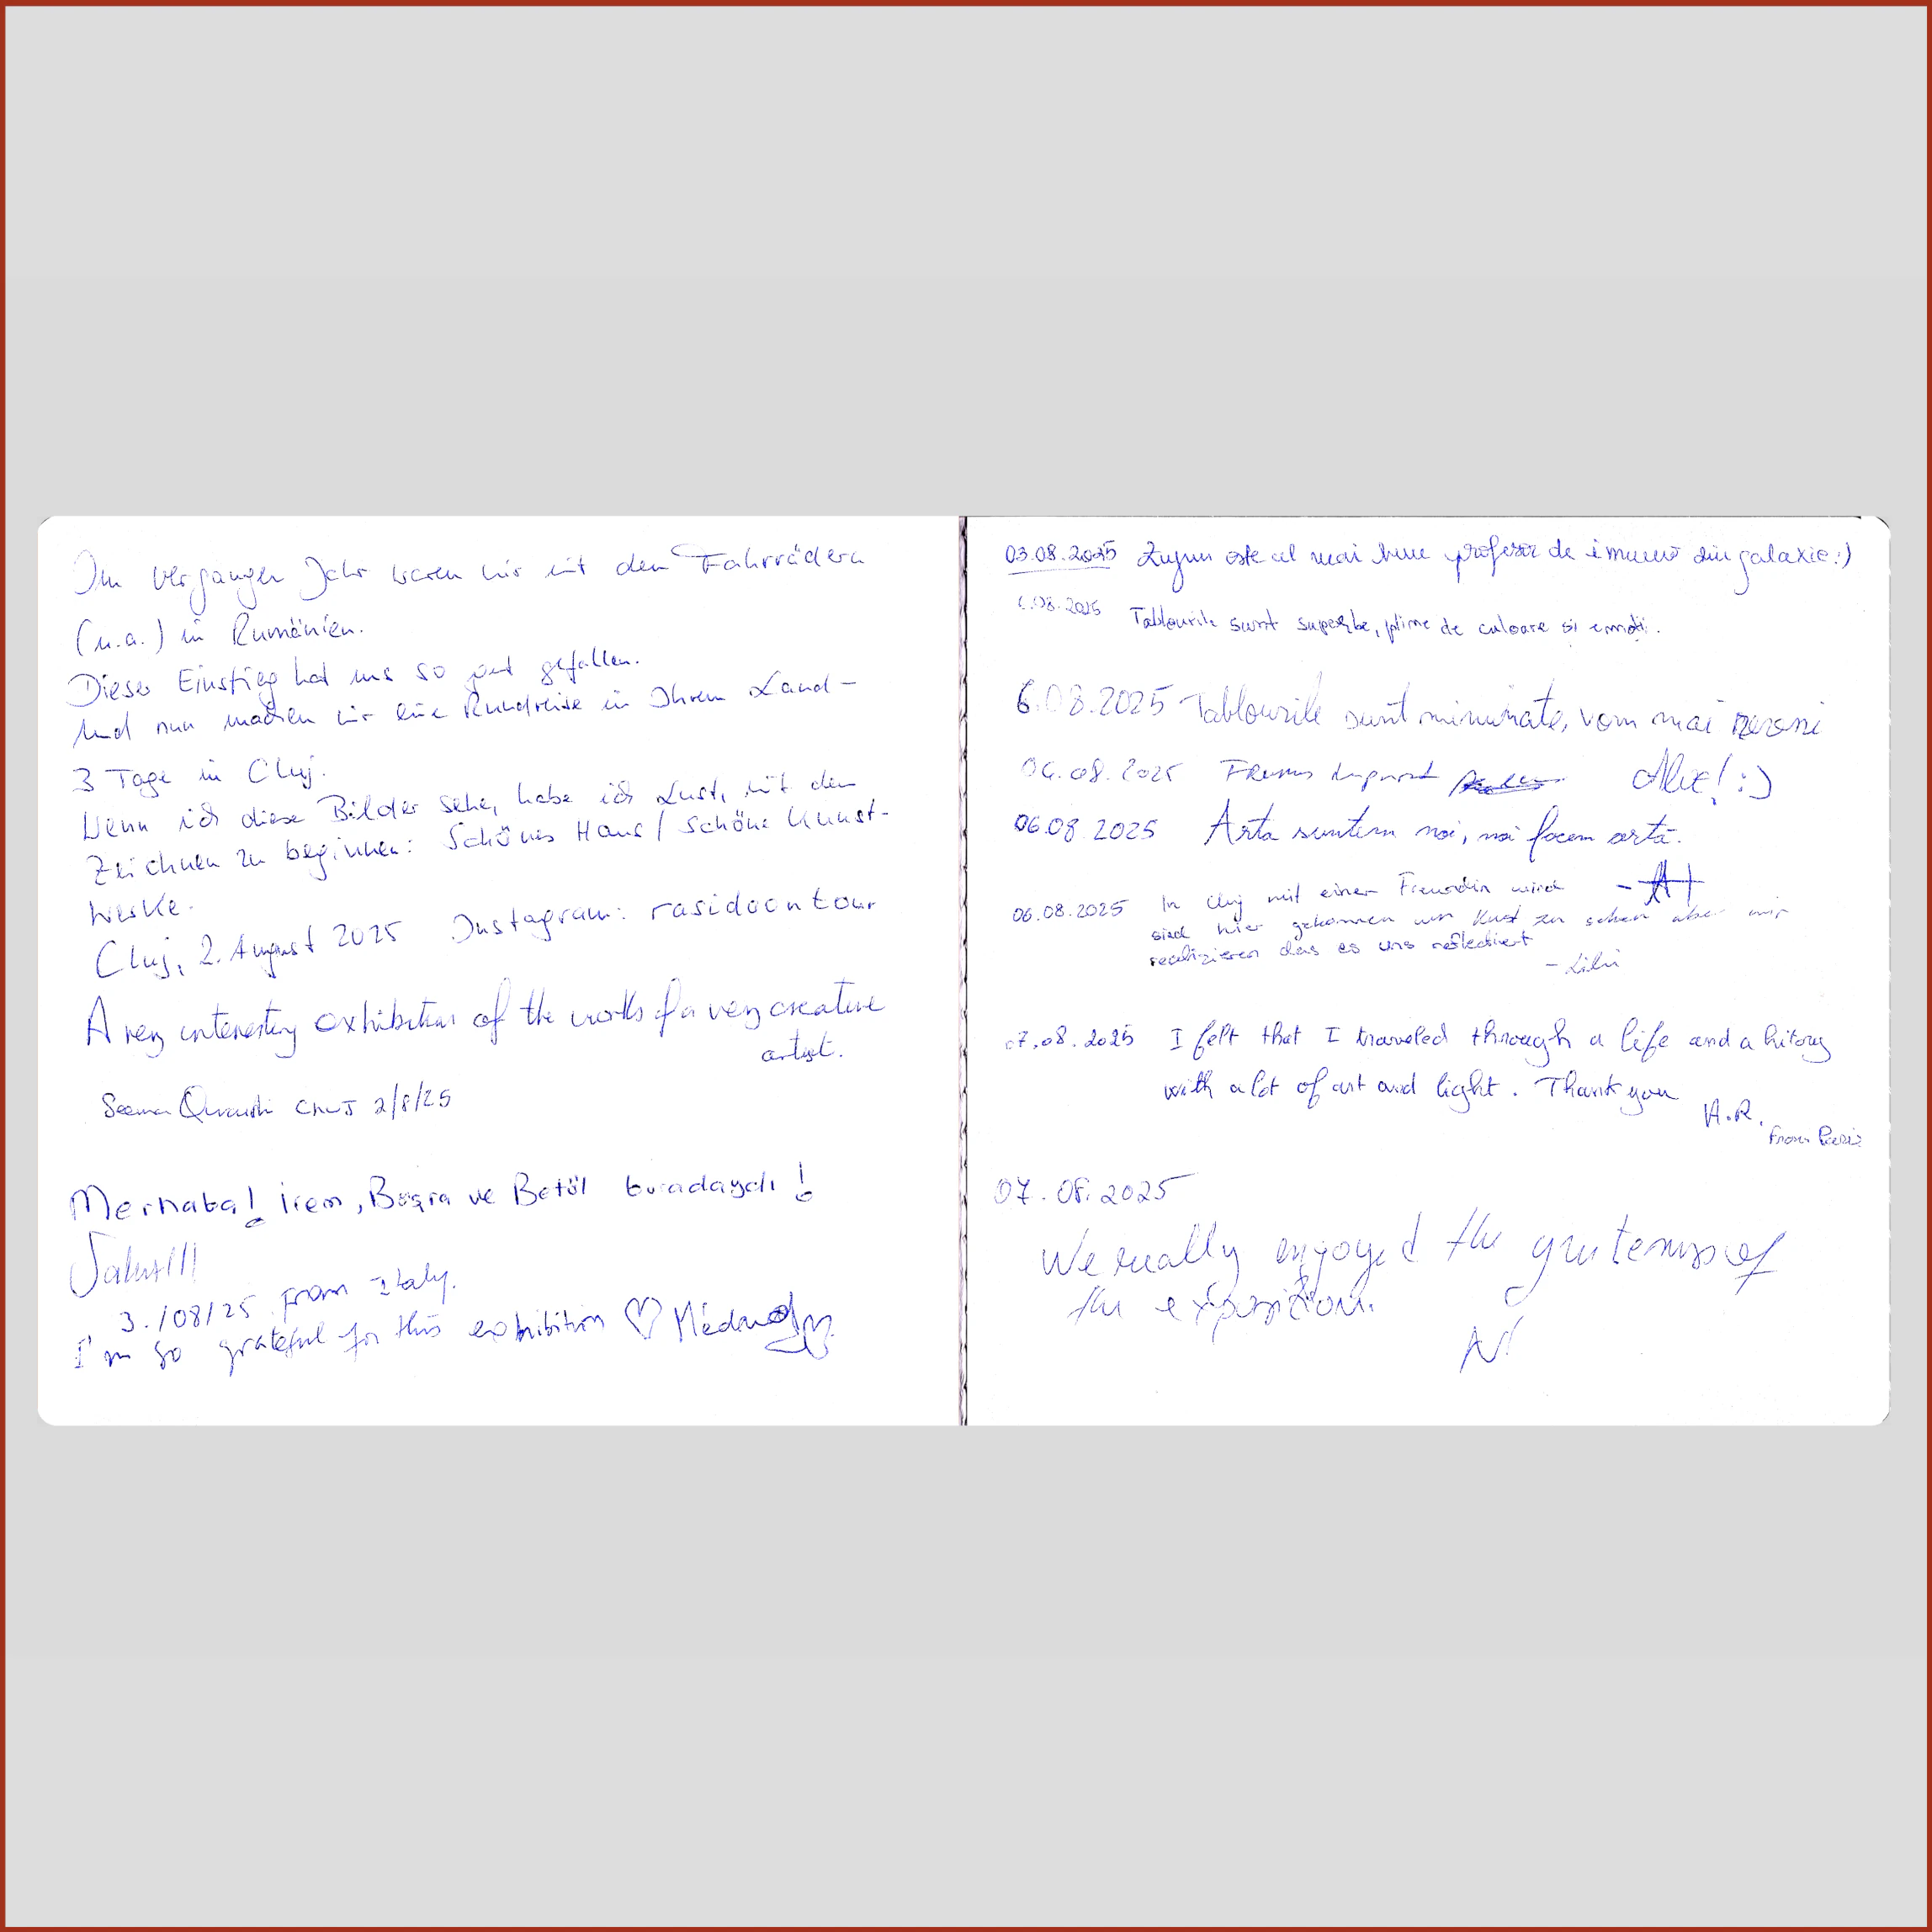 Im vergangen Jahr waren wir mit den Fahrrädern
(u.a.) in Rumänien.
Dieser Einstieg hat uns so gut gefallen.
Und nun machen wir eine Rundreise in Ihrem Land –
3 Tage in Cluj.
Wenn ich diese Bilder sehe, habe ich Lust, mit dem
Zeichnen zu beginnen: Schönes Haus / Schöne Kunst-
werke.
Cluj, 2. August 2025 Instagram: rasidoontour
A very interesting exhibition of the works of a very creative
artist.
Seema Qureshi CLUJ 2/8/25
Merhaba! İrem, Büşra ve Betül buradaydı!
3./08/25 from Italy.
I'm so grateful for this exhibition ♡
03.08.2025 este cel mai bun profesor de din galaxie :)
08.2025 Tablourile sunt superbe, pline de culoare si emoții.
6.08.2025 Tablourile sunt minunate, vom mai reveni
06.08.2025 Frumos Alex! :)
06.08.2025 Arta suntem noi, noi facem arta.
06.08.2025 In Cluj mit einer Freundin wird
sind hier gekommen um Kust zu sehen aber wir
realizieren das es uns reflectiert
- Lilii
07.08.2025 I felt that I traveled through a life and a hitory
with a lot of art and light. Thank you
A.R.
From Paris
07.08.2025
We really enjoyed the of
the exposition.